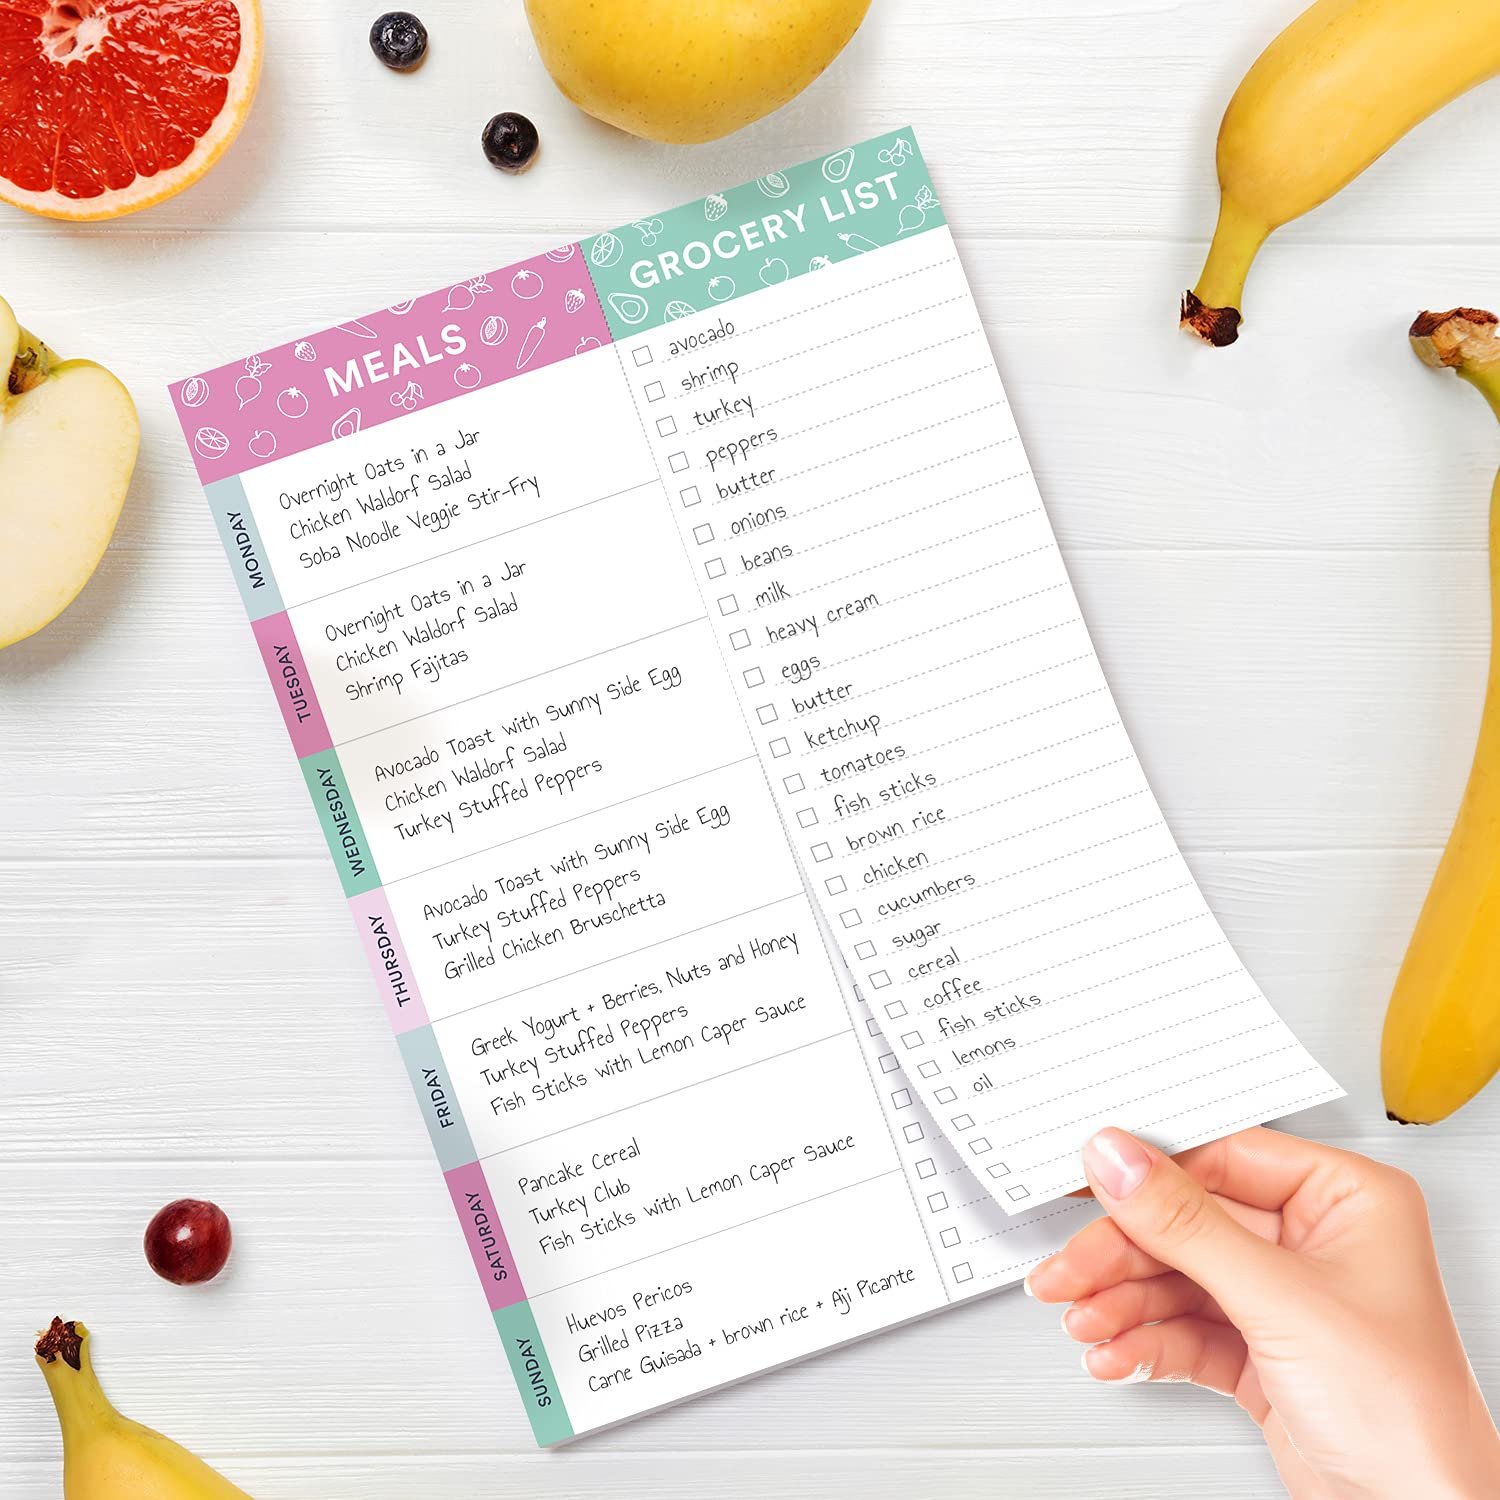 MEALS
MONDAY
Overnight Oats in a Jar
Chicken Waldorf Salad
Soba Noodle Veggie Stir-Fry
TUESDAY
Overnight Oats in a Jar
Chicken Waldorf Salad
Shrimp Fajitas
WEDNESDAY
Avocado Toast with Sunny Side Egg
Chicken Waldorf Salad
Turkey Stuffed Peppers
THURSDAY
Avocado Toast with Sunny Side Egg
Turkey Stuffed Peppers
Grilled Chicken Bruschetta
FRIDAY
Greek Yogurt + Berries, Nuts and Honey
Turkey Stuffed Peppers
Fish Sticks with Lemon Caper Sauce
SATURDAY
Pancake Cereal
Turkey Club
Fish Sticks with Lemon Caper Sauce
SUNDAY
Huevos Pericos
Grilled Pizza
Carne Guisada + brown rice + Aji Picante
GROCERY LIST
avocado
shrimp
turkey
peppers
butter
onions
beans
milk
heavy cream
eggs
butter
ketchup
tomatoes
fish sticks
brown rice
chicken
cucumbers
sugar
cereal
coffee
fish sticks
lemons
oil